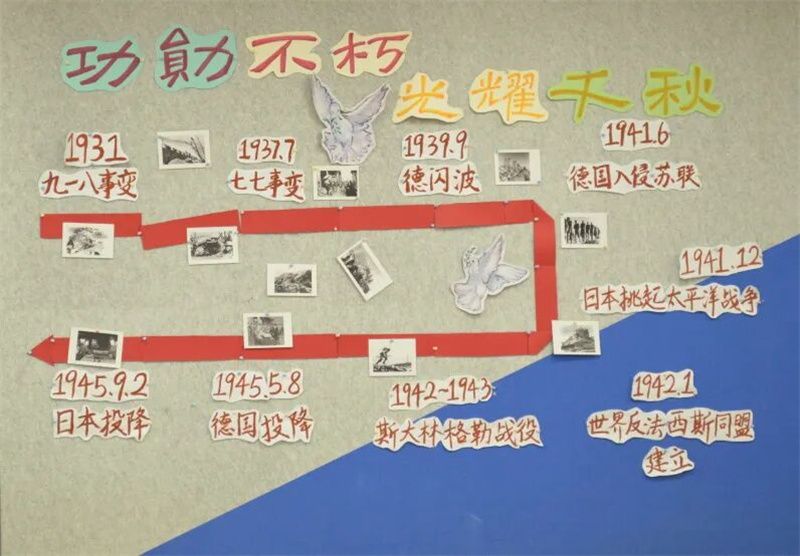 功勛不朽
光耀千秋
1931
九一八事变
1937.7
七七事变
1939.9
德闪波
1941.6
德国入侵苏联
1941.12
日本挑起太平洋战争
1942.1
世界反法西斯同盟
建立
1942~1943
斯大林格勒战役
1945.5.8
德国投降
1945.9.2
日本投降